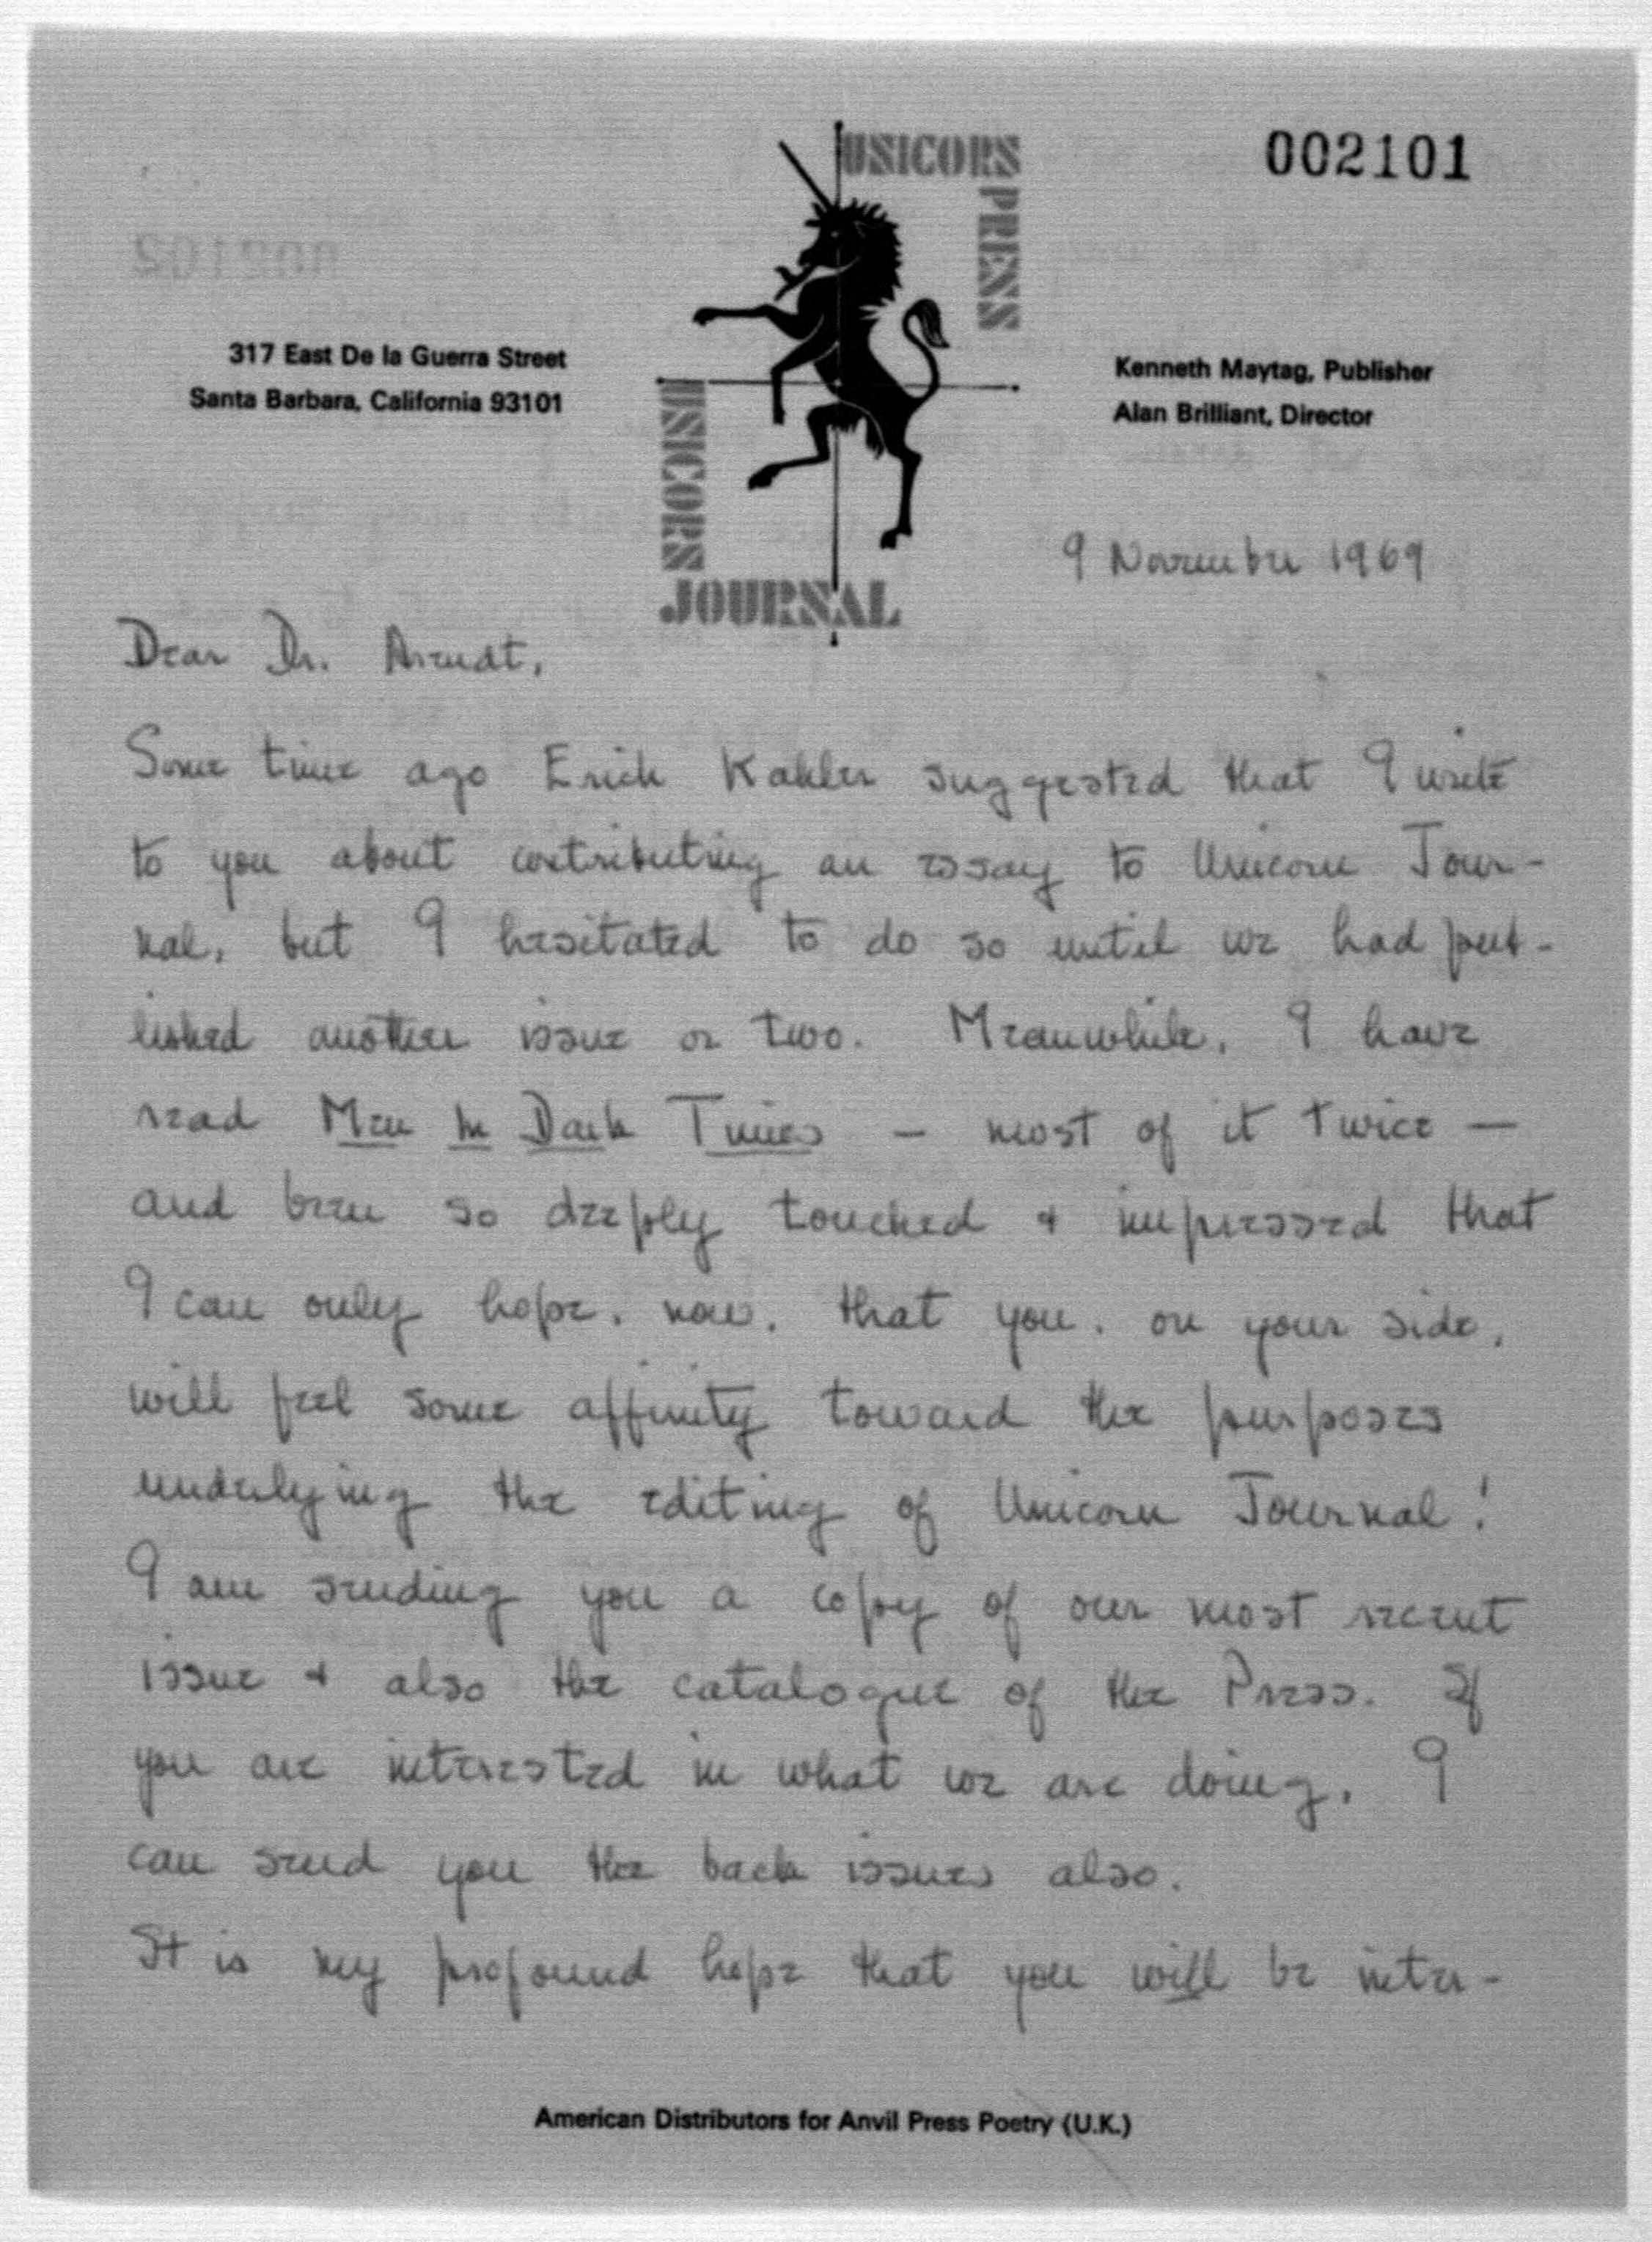 UNICORN
PRESS
002101
317 East De la Guerra Street
Santa Barbara, California 93101
Kenneth Maytag, Publisher
Alan Brilliant, Director
UNICORN
JOURNAL
9 November 1969
Dear Dr. Arendt,
Some time ago Erich Kahler suggested that I write
to you about contributing an essay to Unicorn Jour-
nal, but I hesitated to do so until we had pub-
lished another issue or two. Meanwhile, I have
read Men In Dark Times — most of it twice —
and been so deeply touched & impressed that
I can only hope, now, that you, on your side,
will feel some affinity toward the purposes
underlying the editing of Unicorn Journal!
I am sending you a copy of our most recent
issue & also the catalogue of the Press. If
you are interested in what we are doing, I
can send you the back issues also.
It is my profound hope that you will be inter-
American Distributors for Anvil Press Poetry (U.K.)